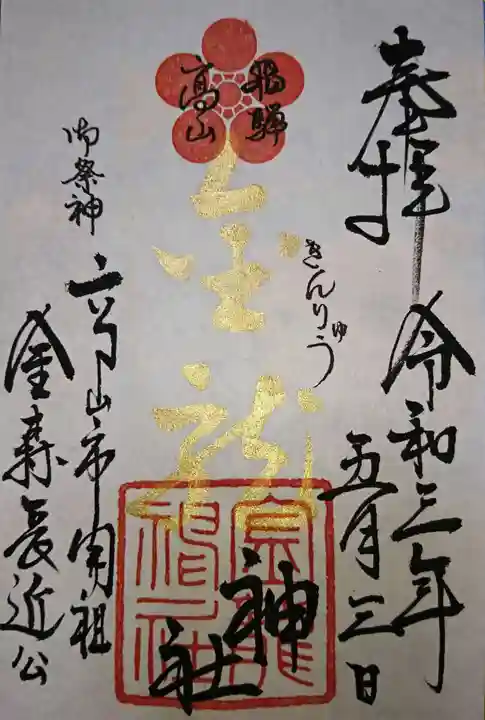 奉拝
令和三年
五月三日
飛騨
高山
金龍
きんりゅう
神
社
金龍
神社
御祭神
高山市開祖
金森長近公